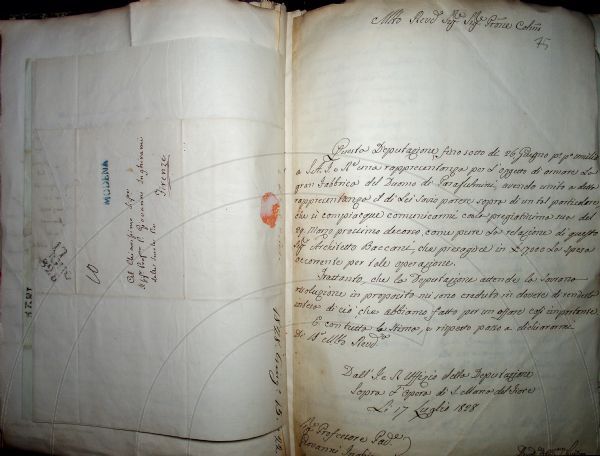 MODENA
Firenze
Molto Rev.do Sig.r Sig.r P.rone Col.mo
45
Questa Deputazione, fino sotto dì 26 Giugno p.° p.° umiliò
a S.A.I. e R.le una rappresentanza per l'oggetto di armare la
gran Fabbrica del Duomo di Parafulmini, avendo unito a detta
rappresentanza il di Lei savio parere sopra di tal particolare,
che si compiacque comunicarmi colla pregiatissima sua del
29. Marzo prossimo decorso, come pure la relazione di questo
Sig.r Architetto Baccani, che presagisce in £ 7200 la spesa
occorrente per tale operazione.
Frattanto, che la Deputazione attende la Sovrana
risoluzione in proposito mi sono creduto in dovere di renderla
intesa di ciò, che abbiamo fatto per un affare così importante.
E con tutta la stima, e rispetto passo a dichiararmi
Di V.S. Molto Rev.da
Dall' I. e R. Uffizio della Deputazione
Sopra l' Opera di S. Maria del Fiore
Li 17 Luglio 1828
Sig.r Professore Pad.e
Giovanni